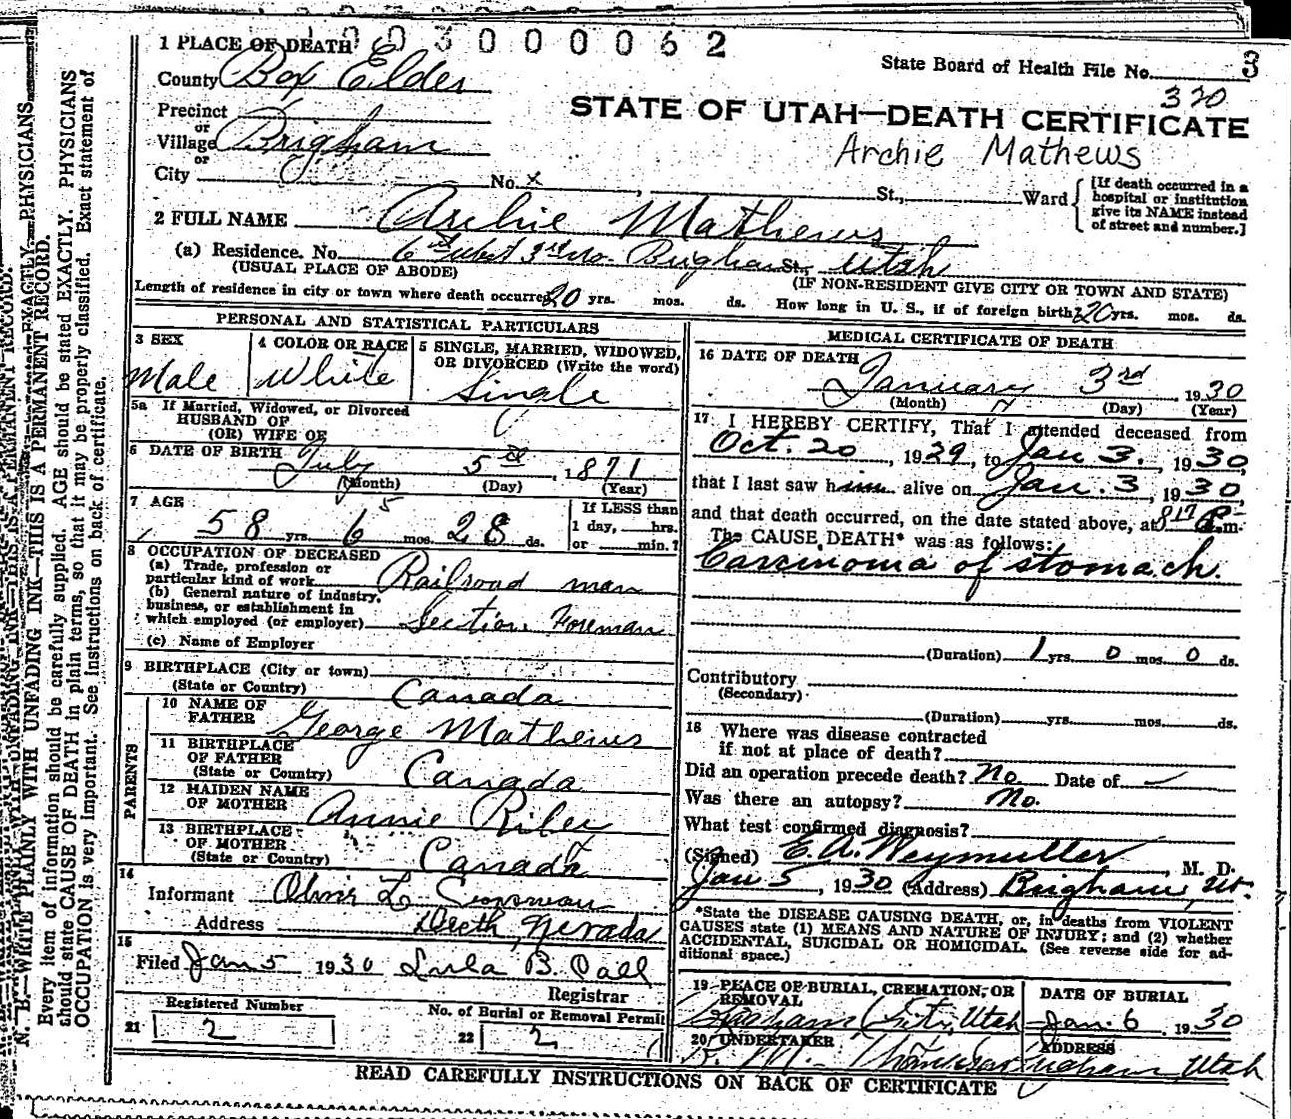 1 PLACE OF DEATH 3000062
County Box Elder
State Board of Health File No. 3
320
Precinct
or
Village Brigham
or
City No. x St., Ward
[If death occurred in a
hospital or institution
give its NAME instead
of street and number.]
STATE OF UTAH—DEATH CERTIFICATE
Archie Mathews
2 FULL NAME Archie Mathews
(a) Residence. No. 6th West 3rd No. Brigham St., Utah
(USUAL PLACE OF ABODE) (IF NON-RESIDENT GIVE CITY OR TOWN AND STATE)
Length of residence in city or town where death occurred 20 yrs. mos. ds. How long in U. S., if of foreign birth? 20 yrs. mos. ds.
PERSONAL AND STATISTICAL PARTICULARS
3 SEX
Male
4 COLOR OR RACE
White
5 SINGLE, MARRIED, WIDOWED,
OR DIVORCED (Write the word)
Single
5a If Married, Widowed, or Divorced
HUSBAND OF
(OR) WIFE OF
6 DATE OF BIRTH July 5th, 1871
(Month) (Day) (Year)
7 AGE 5
58 yrs. 6 mos. 28 ds.
If LESS than
1 day, hrs.
or min.?
8 OCCUPATION OF DECEASED
(a) Trade, profession or
particular kind of work Railroad man
(b) General nature of industry,
business, or establishment in
which employed (or employer) Section Foreman
(c) Name of Employer
9 BIRTHPLACE (City or town)
(State or Country) Canada
PARENTS
10 NAME OF
FATHER George Mathews
11 BIRTHPLACE
OF FATHER
(State or Country) Canada
12 MAIDEN NAME
OF MOTHER Annie Riley
13 BIRTHPLACE
OF MOTHER
(State or Country) Canada
14
Informant
Address Deeth, Nevada
15
Filed Jan 5 1930 Lula B. Call
Registrar
Registered Number
21 2
No. of Burial or Removal Permit
22 2
MEDICAL CERTIFICATE OF DEATH
16 DATE OF DEATH
January 3rd, 1930
(Month) (Day) (Year)
17 I HEREBY CERTIFY, That I attended deceased from
Oct. 20, 1929, to Jan 3., 1930,
that I last saw him alive on Jan. 3, 1930,
and that death occurred, on the date stated above, at P. m.
The CAUSE DEATH* was as follows:
Carcinoma of stomach.
(Duration) 1 yrs. 0 mos. 0 ds.
Contributory
(Secondary)
(Duration) yrs. mos. ds.
18 Where was disease contracted
if not at place of death?
Did an operation precede death? No Date of
Was there an autopsy? No.
What test confirmed diagnosis?
(Signed) E. A. Weymuller, M. D.
Jan 5, 1930 (Address) Brigham, Ut.
*State the DISEASE CAUSING DEATH, or, in deaths from VIOLENT
CAUSES state (1) MEANS AND NATURE OF INJURY; and (2) whether
ACCIDENTAL, SUICIDAL OR HOMICIDAL. (See reverse side for ad-
ditional space.)
19 PLACE OF BURIAL, CREMATION, OR
REMOVAL
Brigham City, Utah
DATE OF BURIAL
Jan. 6, 1930
20 UNDERTAKER
ADDRESS
Brigham, Utah
READ CAREFULLY INSTRUCTIONS ON BACK OF CERTIFICATE
N. B.—WRITE PLAINLY WITH UNFADING INK—THIS IS A PERMANENT RECORD.
Every item of information should be carefully supplied. AGE should be stated EXACTLY. PHYSICIANS
should state CAUSE OF DEATH in plain terms, so that it may be properly classified. Exact statement of
OCCUPATION is very important. See instructions on back of certificate.